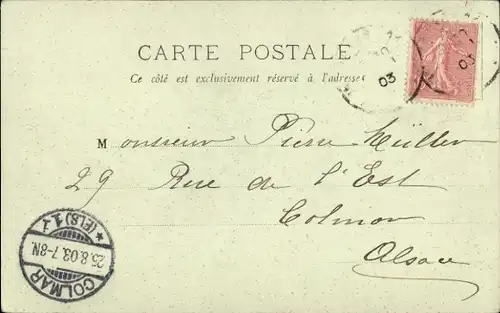 CARTE POSTALE
Ce côté est exclusivement réservé à l'adresse
03
03
Monsieur Pierre Müller
29 Rue de l'Est
Colmar
Alsace
COLMAR
* (ELS) 1
25.8.03.7-8N.